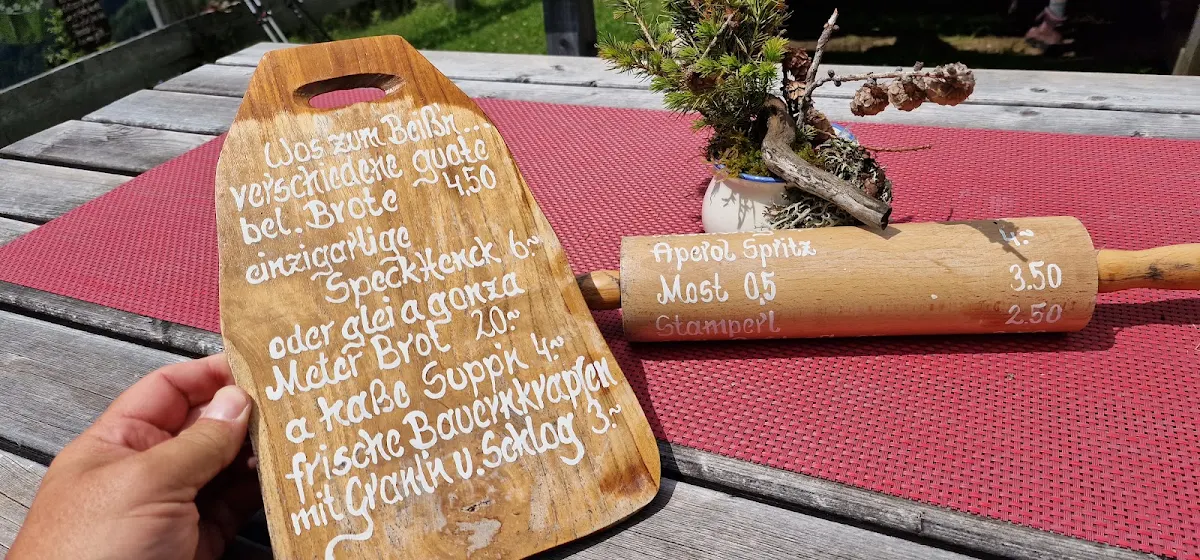 Wos zum Beißn...
verschiedene guate
bel. Brote 4,50
einzigartige
Speckhenck 6.~
oder glei a gonza
Meter Brot 20.~
a haße Suppn 4.~
frische Bauernkrapfen
mit Grantn u. Schlog 3.~
Aperol Spritz 4.~
Most 0,5 3.50
Stamperl 2.50